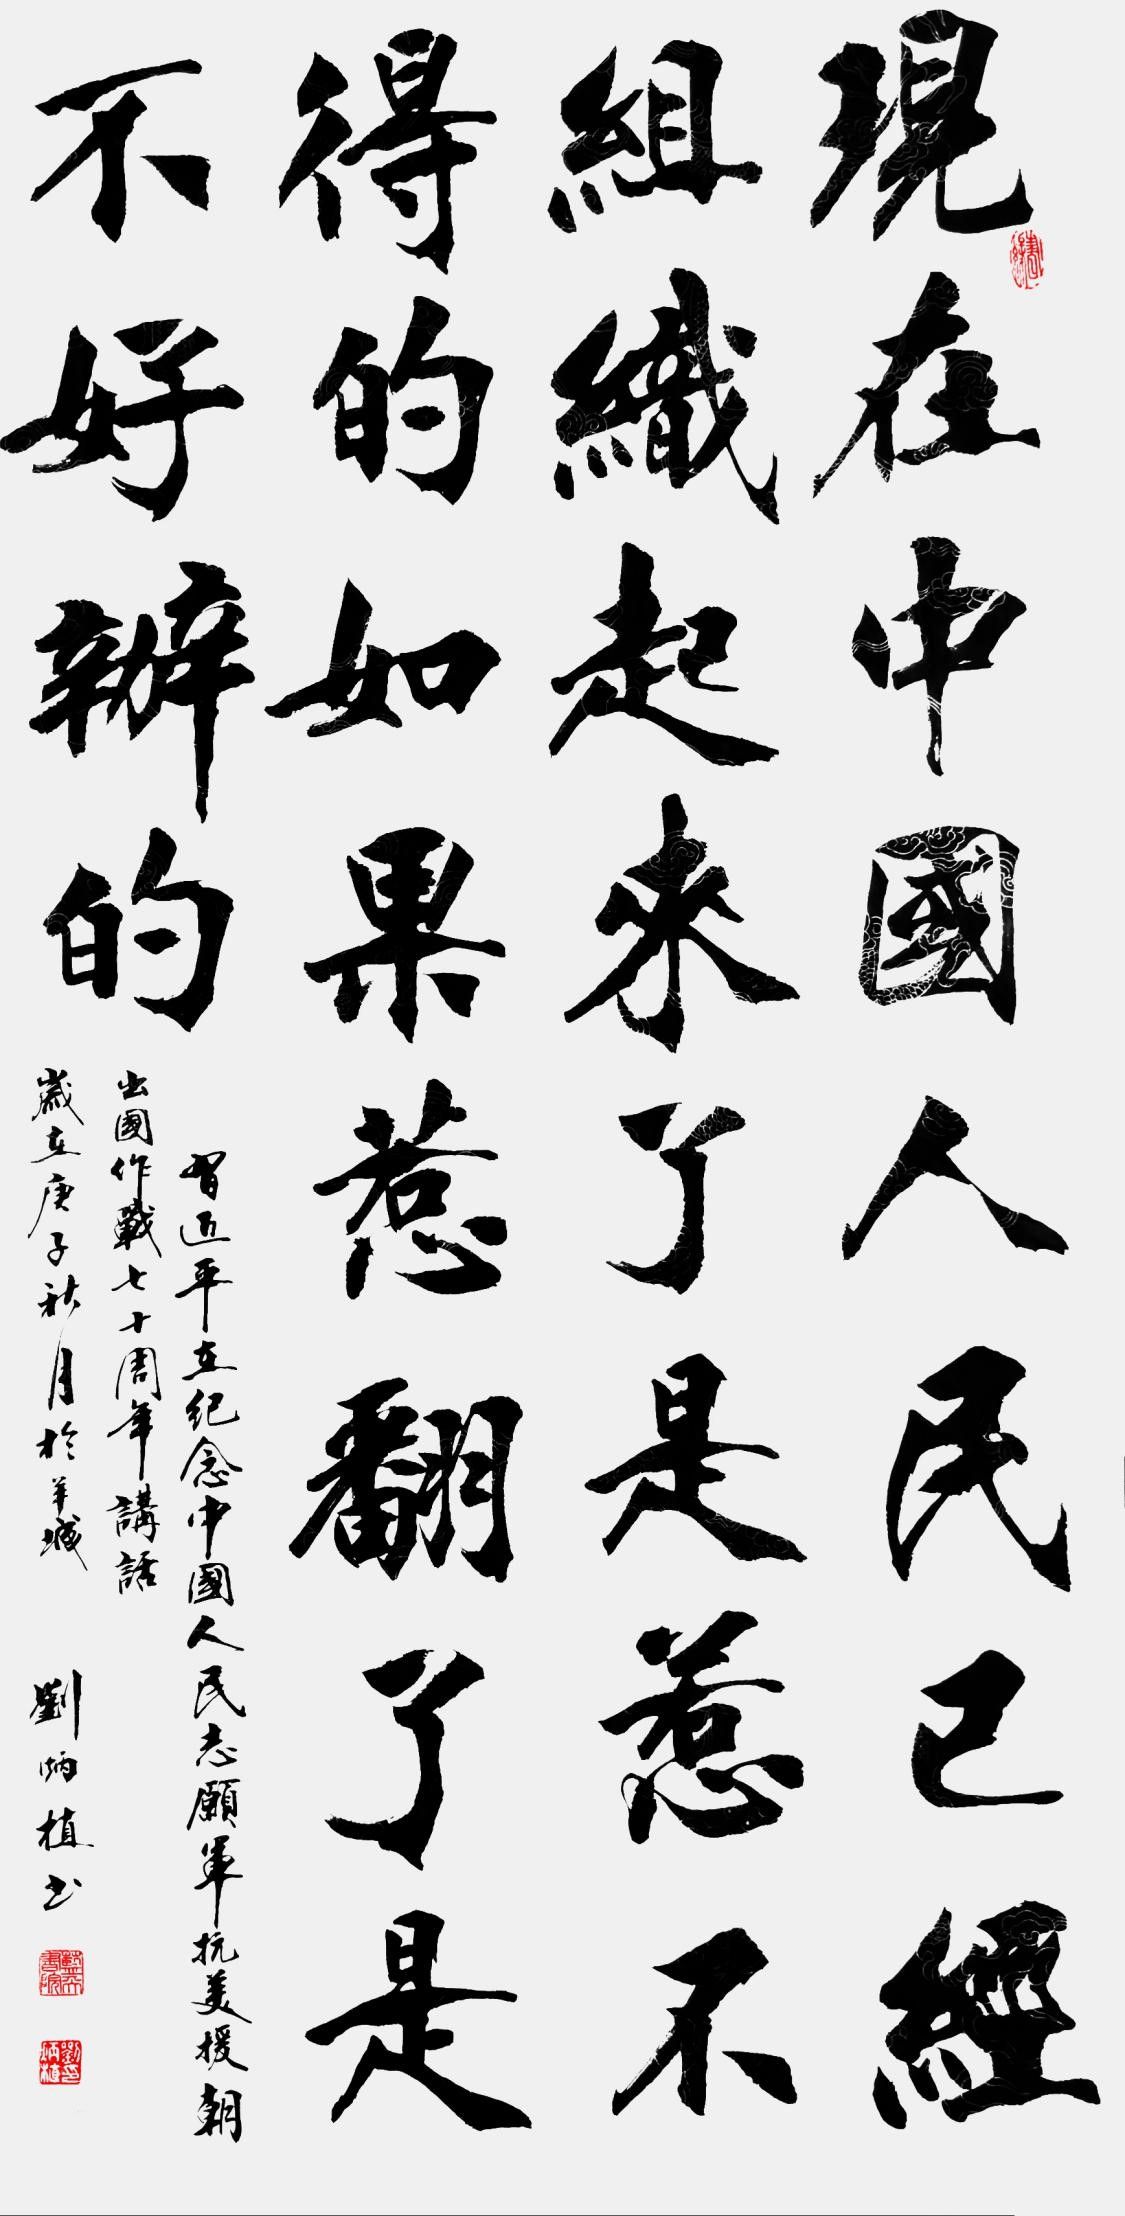 現在中國人民已經
組織起來了是惹不
得的如果惹翻了是
不好辦的
習近平在紀念中國人民志願軍抗美援朝
出國作戰七十周年講話
歲在庚子秋月於羊城
劉炳植书
劉炳植印